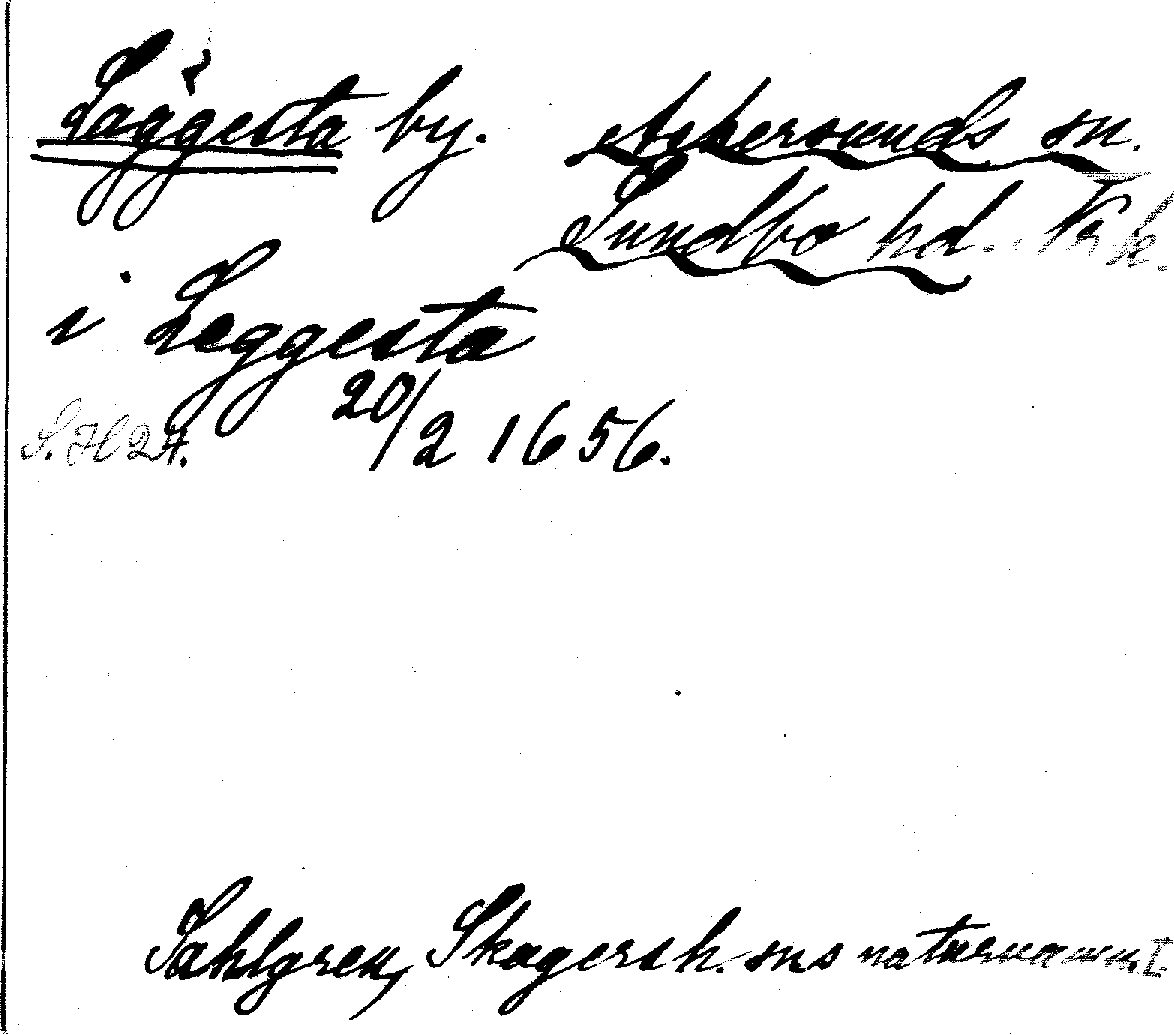 Läggesta by. Askersunds sn.
Sundbo hd. Närk.
i Leggesta
S. H 27. 20/2 1656.
Sahlgren, Skagersh. sns naturnamn. I.